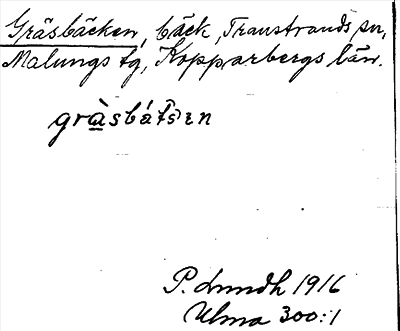 Gräsbäcken, bäck, Transtrands sn,
Malungs tg, Kopparbergs län.
gràsbátsen
P. Lundh 1916
Ulma 300:1